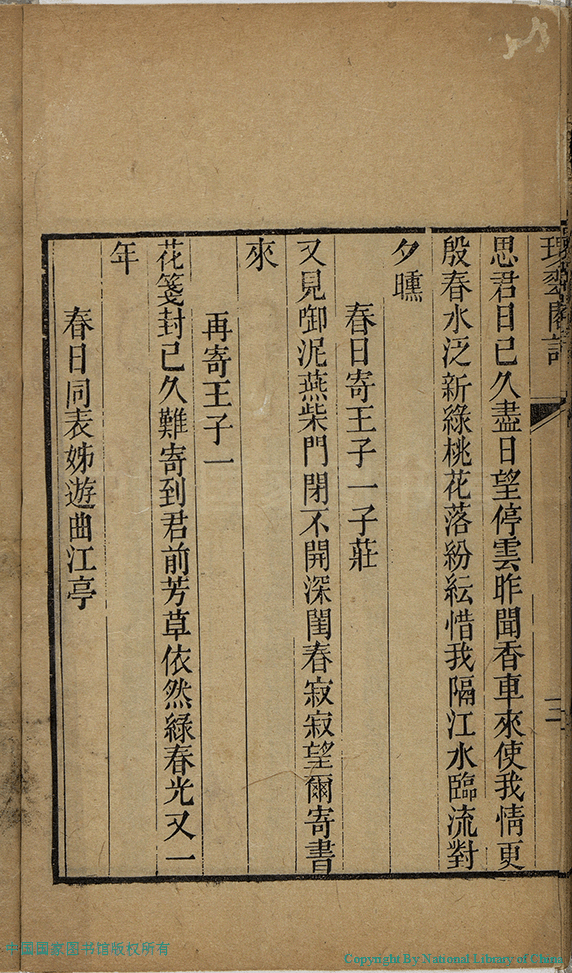 思君日已久盡日望停雲昨聞香車來使我情更
殷春水泛新綠桃花落紛紜惜我隔江水臨流對
夕曛
春日寄王子一子莊
又見啣泥燕柴門閉不開深閨春寂寂望爾寄書
來
再寄王子一
花箋封已久難寄到君前芳草依然綠春光又一
年
春日同表姊遊曲江亭
三
中国国家图书馆版权所有
Copyright By National Library of China